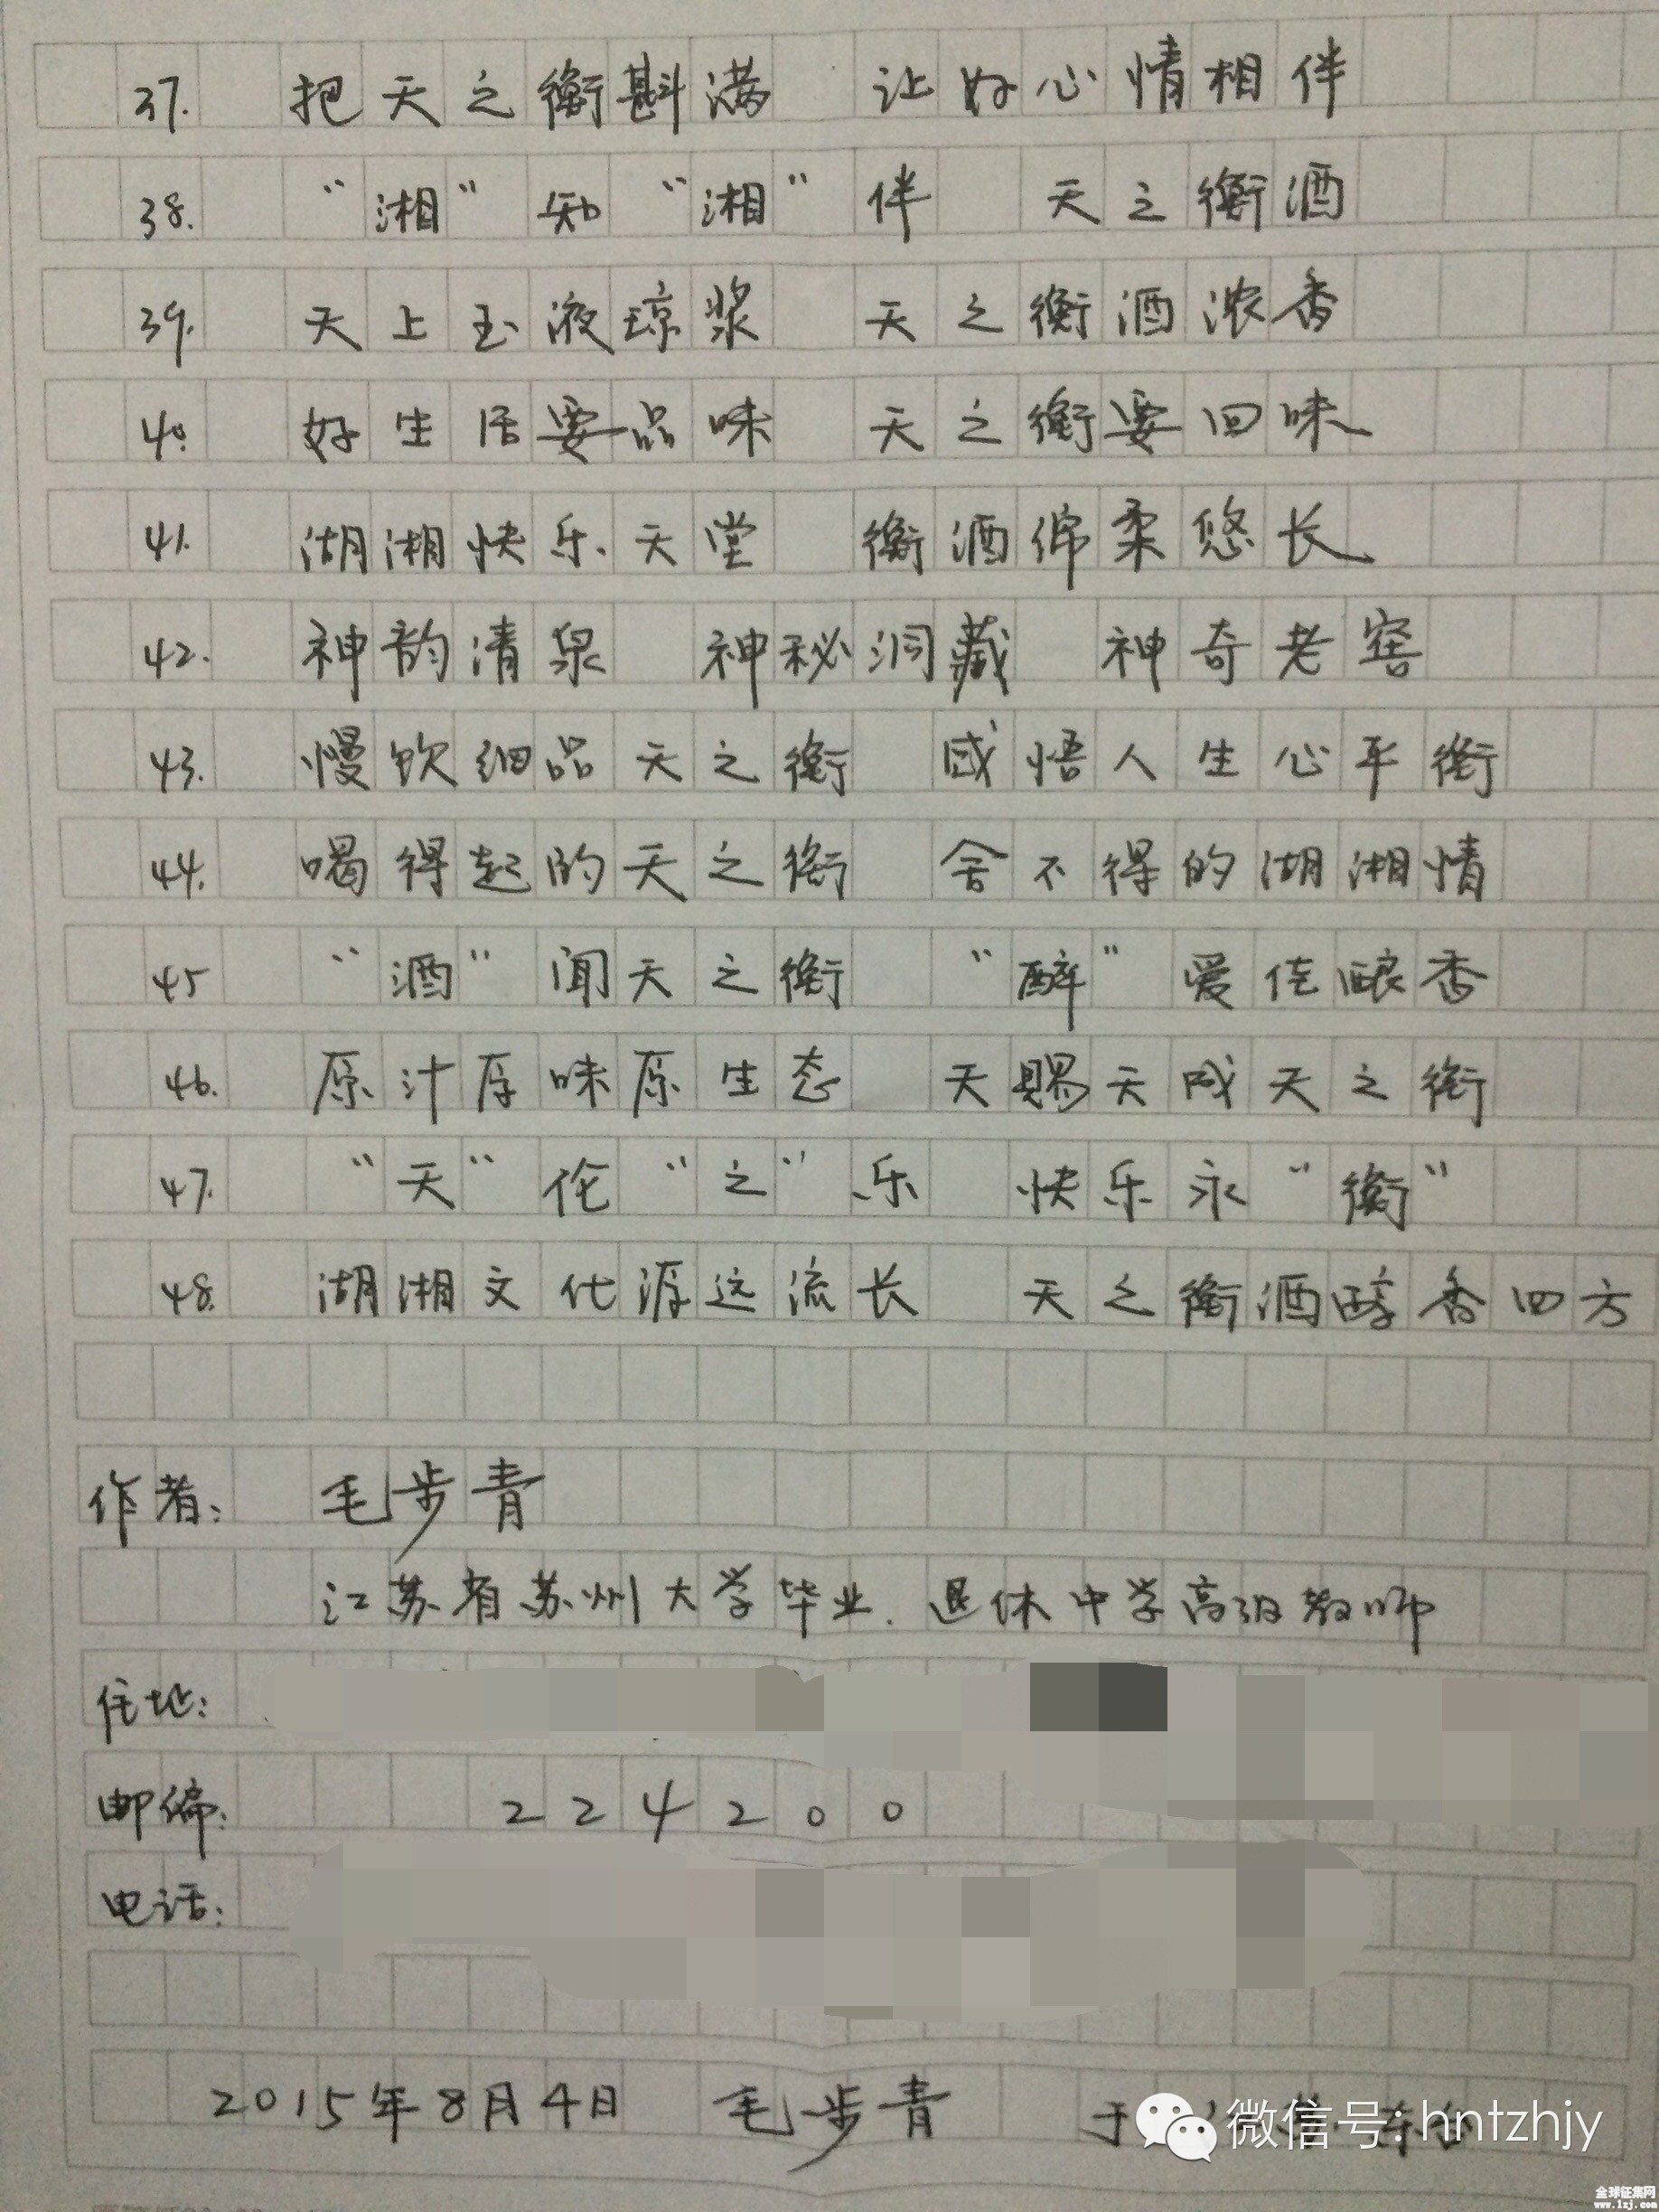 37. 把天之衡斟满 让好心情相伴
38. “湘”知“湘”伴 天之衡酒
39. 天上玉液琼浆 天之衡酒浓香
40. 好生活要品味 天之衡要回味
41. 湖湘快乐天堂 衡酒绵柔悠长
42. 神韵清泉 神秘洞藏 神奇老窖
43. 慢饮细品天之衡 感悟人生心平衡
44. 喝得起的天之衡 舍不得的湖湘情
45 “酒”闻天之衡 “醉”爱佳酿香
46. 原汁原味原生态 天赐天成天之衡
47. “天”伦“之”乐 快乐永“衡”
48. 湖湘文化源远流长 天之衡酒醇香四方
作者: 毛步青
江苏省苏州大学毕业.退休中学高级教师
住址:
邮编: 224200
电话:
2015年8月4日 毛步青 于
微信号: hntzhjy
全球征集网
www.1zj.com